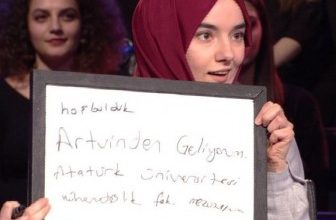 hoşbulduk
Artvinden Geliyorum.
Atatürk üniversitesi
mühendislik fak. mezunuyum